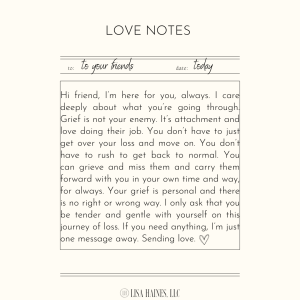 LOVE NOTES
to: to your friends date: today
Hi friend, I'm here for you, always. I care
deeply about what you're going through.
Grief is not your enemy. It's attachment and
love doing their job. You don't have to just
get over your loss and move on. You don't
have to rush to get back to normal. You
can grieve and miss them and carry them
forward with you in your own time and way,
for always. Your grief is personal and there
is no right or wrong way. I only ask that you
be tender and gentle with yourself on this
journey of loss. If you need anything, I'm just
one message away. Sending love.
LISA HAINES, LLC